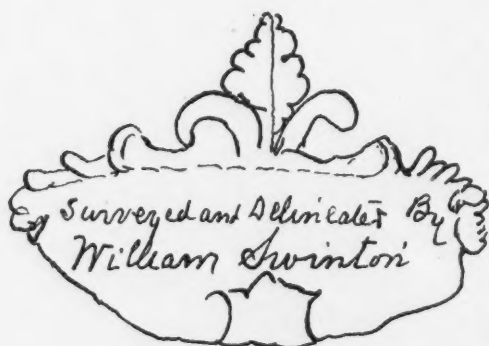 Surveyed and Delineated By
William Swinton